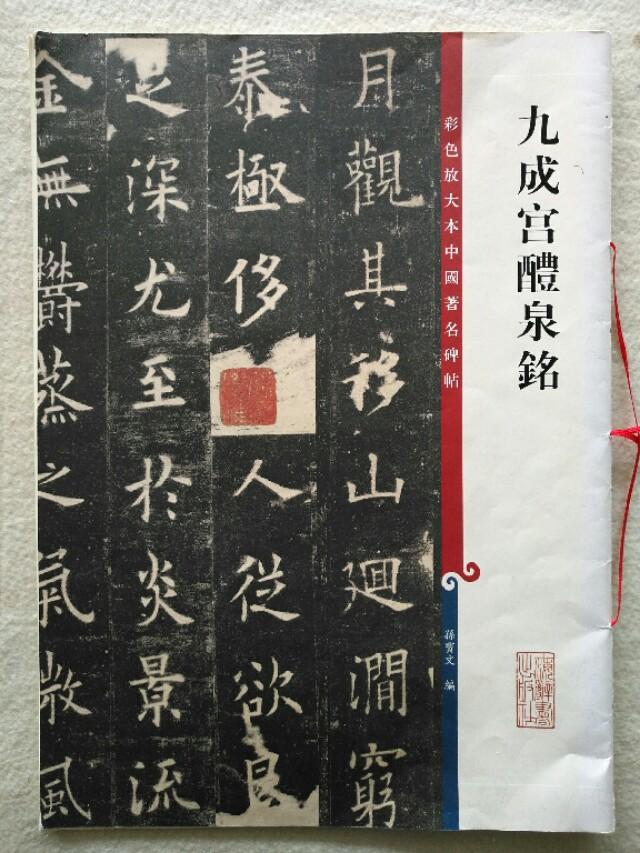 九成宫醴泉銘
彩色放大本中國著名碑帖
孫寶文 編
月觀其移山廻澗窮
泰極侈人從欲良
之深尤至於炎景流
金無鬱蒸之氣微風